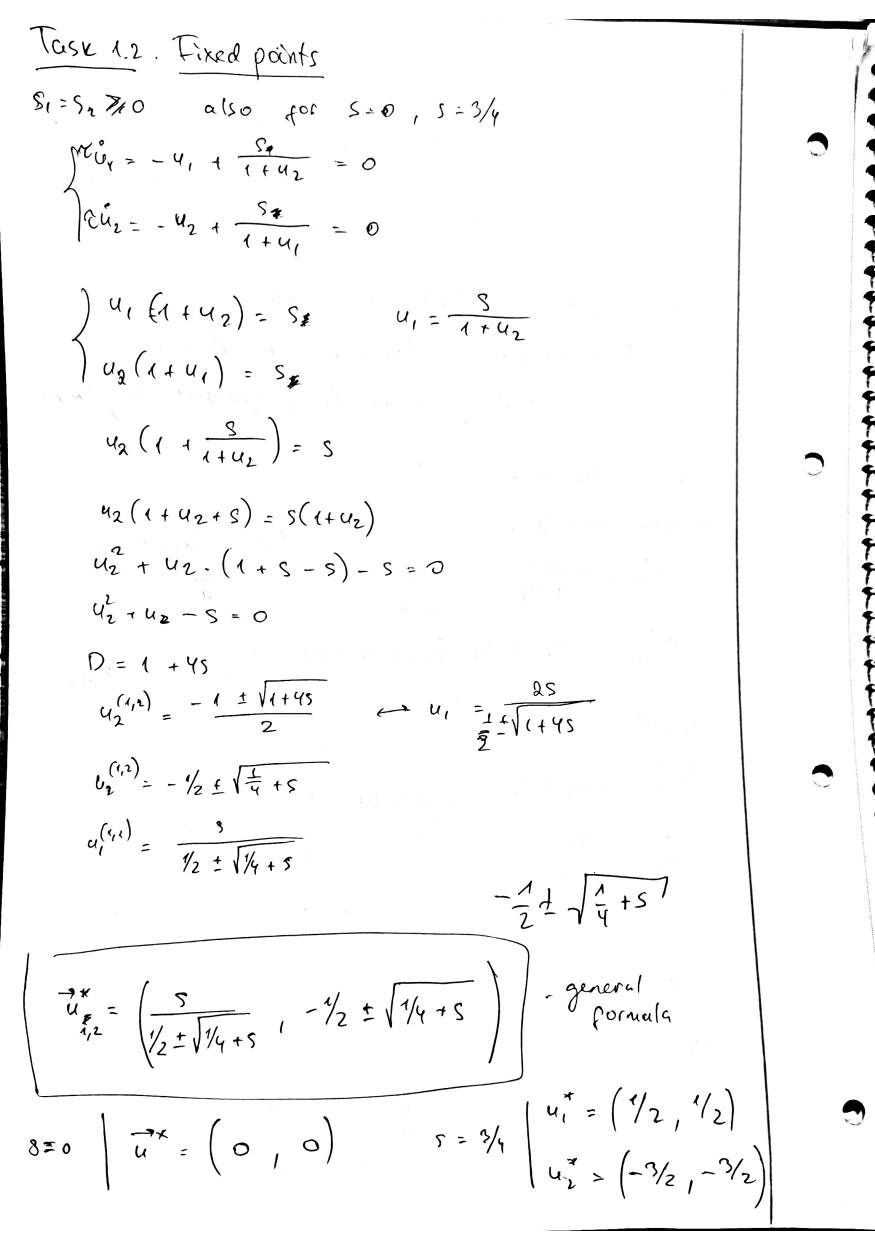 Task 1.2. Fixed points
S₁ = S₂ ⩾ 0 also for S=0, S = 3/4
τu̇₁ = - u₁ + S₁/(1 + u₂) = 0
τu̇₂ = - u₂ + S/(1 + u₁) = 0
u₁ (1 + u₂) = S u₁ = S/(1 + u₂)
u₂ (1 + u₁) = S
u₂ (1 + S/(1+u₂)) = S
u₂ (1 + u₂ + S) = S(1+u₂)
u₂² + u₂ · (1 + S - S) - S = 0
u₂² + u₂ - S = 0
D = 1 + 4S
u₂⁽¹,²⁾ = (-1 ± √(1+4S))/2 ↔ u₁ = 2S/(1 ± √(1+4S))
u₂⁽¹,²⁾ = - 1/2 ± √(1/4 + S)
u₁⁽¹,²⁾ = S/(1/2 ± √(1/4 + S))
-1/2 ± √(1/4 + S)
u⃗*₁,₂ = (S/(1/2 ± √(1/4 + S)), -1/2 ± √(1/4 + S)) - general
formula
S=0 | u⃗* = (0, 0) S = 3/4 | u₁* = (1/2, 1/2)
u₂* = (-3/2, -3/2)